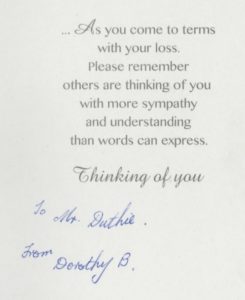 ... As you come to terms
with your loss.
Please remember
others are thinking of you
with more sympathy
and understanding
than words can express.
Thinking of you
To Mr. Duthie.
From
Dorothy B.